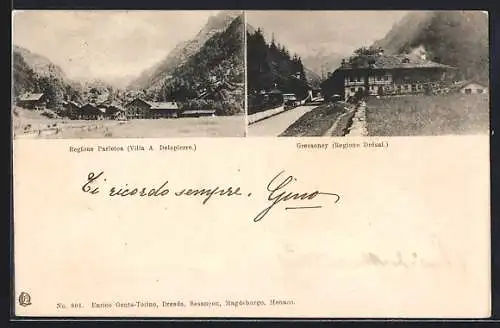 Regione Parletoa (Villa A. Delapierre.)
Gressoney (Regione Dréial.)
Ti ricordo sempre. Gino
No. 801. Enrico Genta-Torino, Dresda, Besançon, Magdeburgo, Monaco.